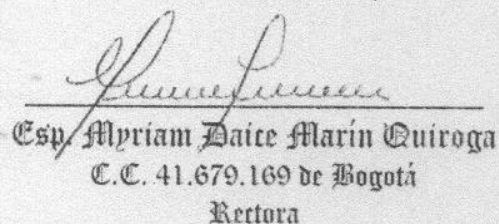 Esp. Myriam Daice Marín Quiroga
C.C. 41.679.169 de Bogotá
Rectora